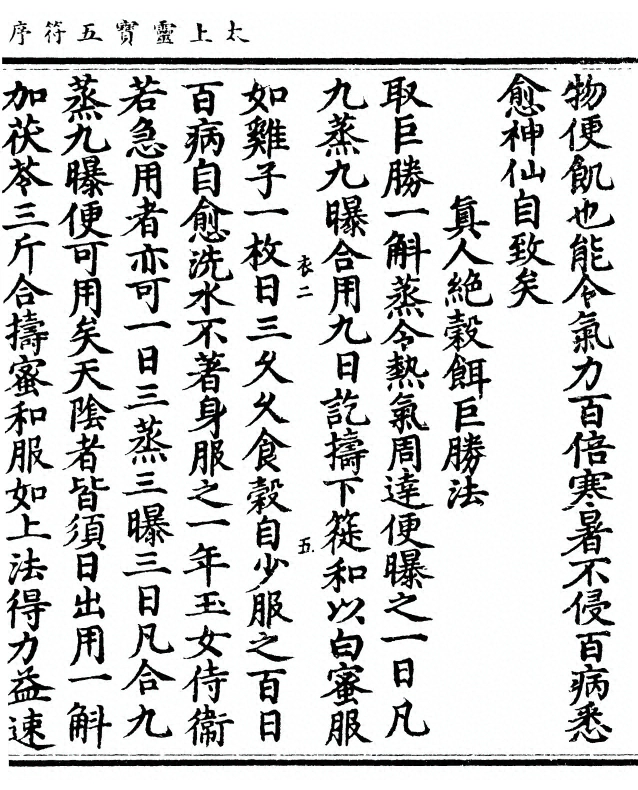 太上靈寶五符序
物便飢也能令氣力百倍寒暑不侵百病悉
愈神仙自致矣
眞人絶穀餌巨勝法
取巨勝一斛蒸令熱氣周達便曝之一日凡
九蒸九曝合用九日訖擣下簁和以白蜜服
衣二
五
如雞子一枚日三久久食穀自少服之百日
百病自愈洗水不著身服之一年玉女侍衞
若急用者亦可一日三蒸三曝三日凡合九
蒸九曝便可用矣天陰者皆須日出用一斛
加茯苓三斤合擣蜜和服如上法得力益速